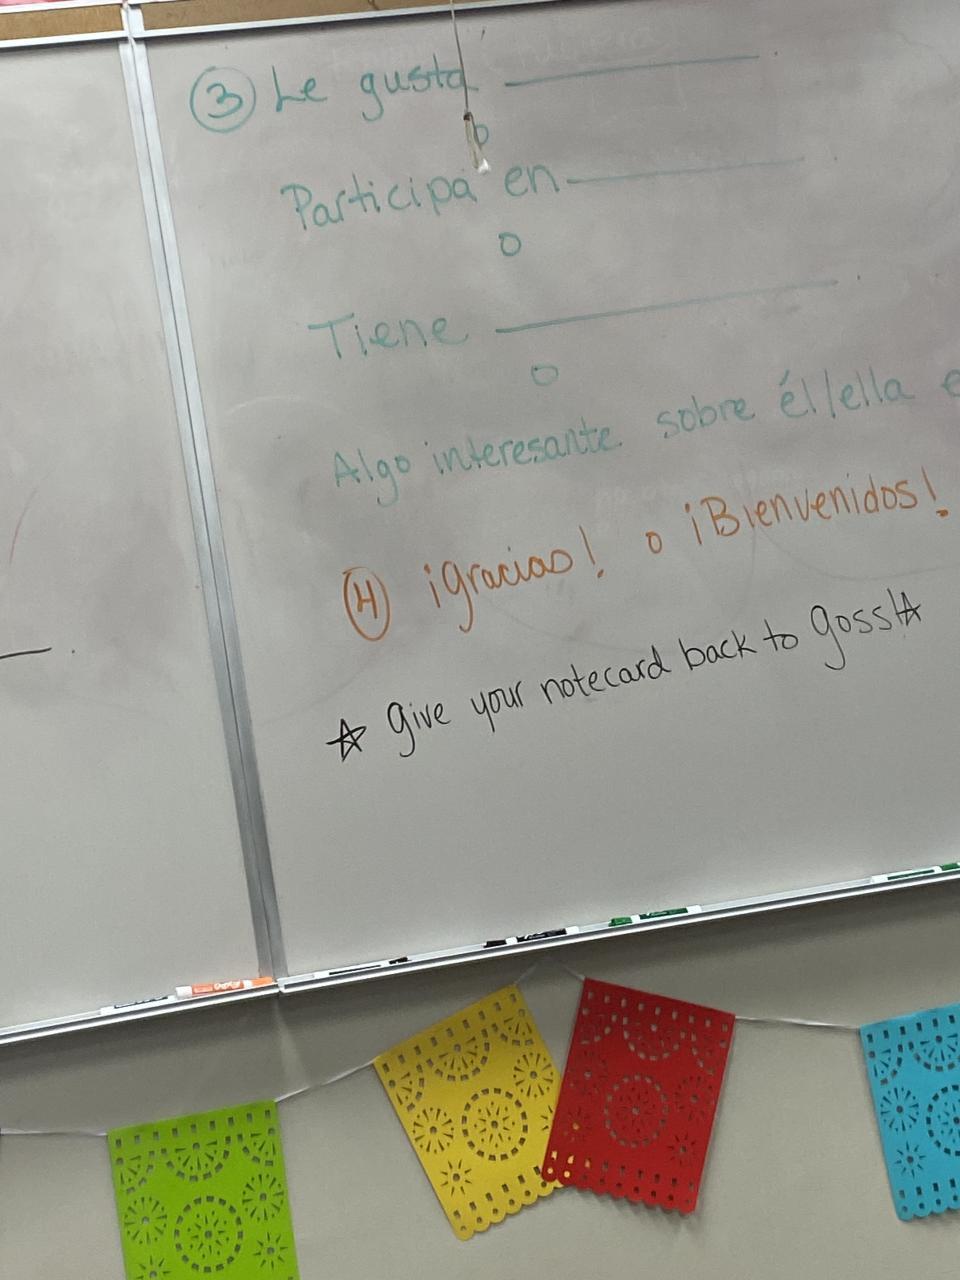 ③ Le gusta ________.
o
Participa en ________.
o
Tiene ________.
o
Algo interesante sobre él/ella e
④ ¡gracias! o ¡Bienvenidos!
☆ give your notecard back to goss! ☆